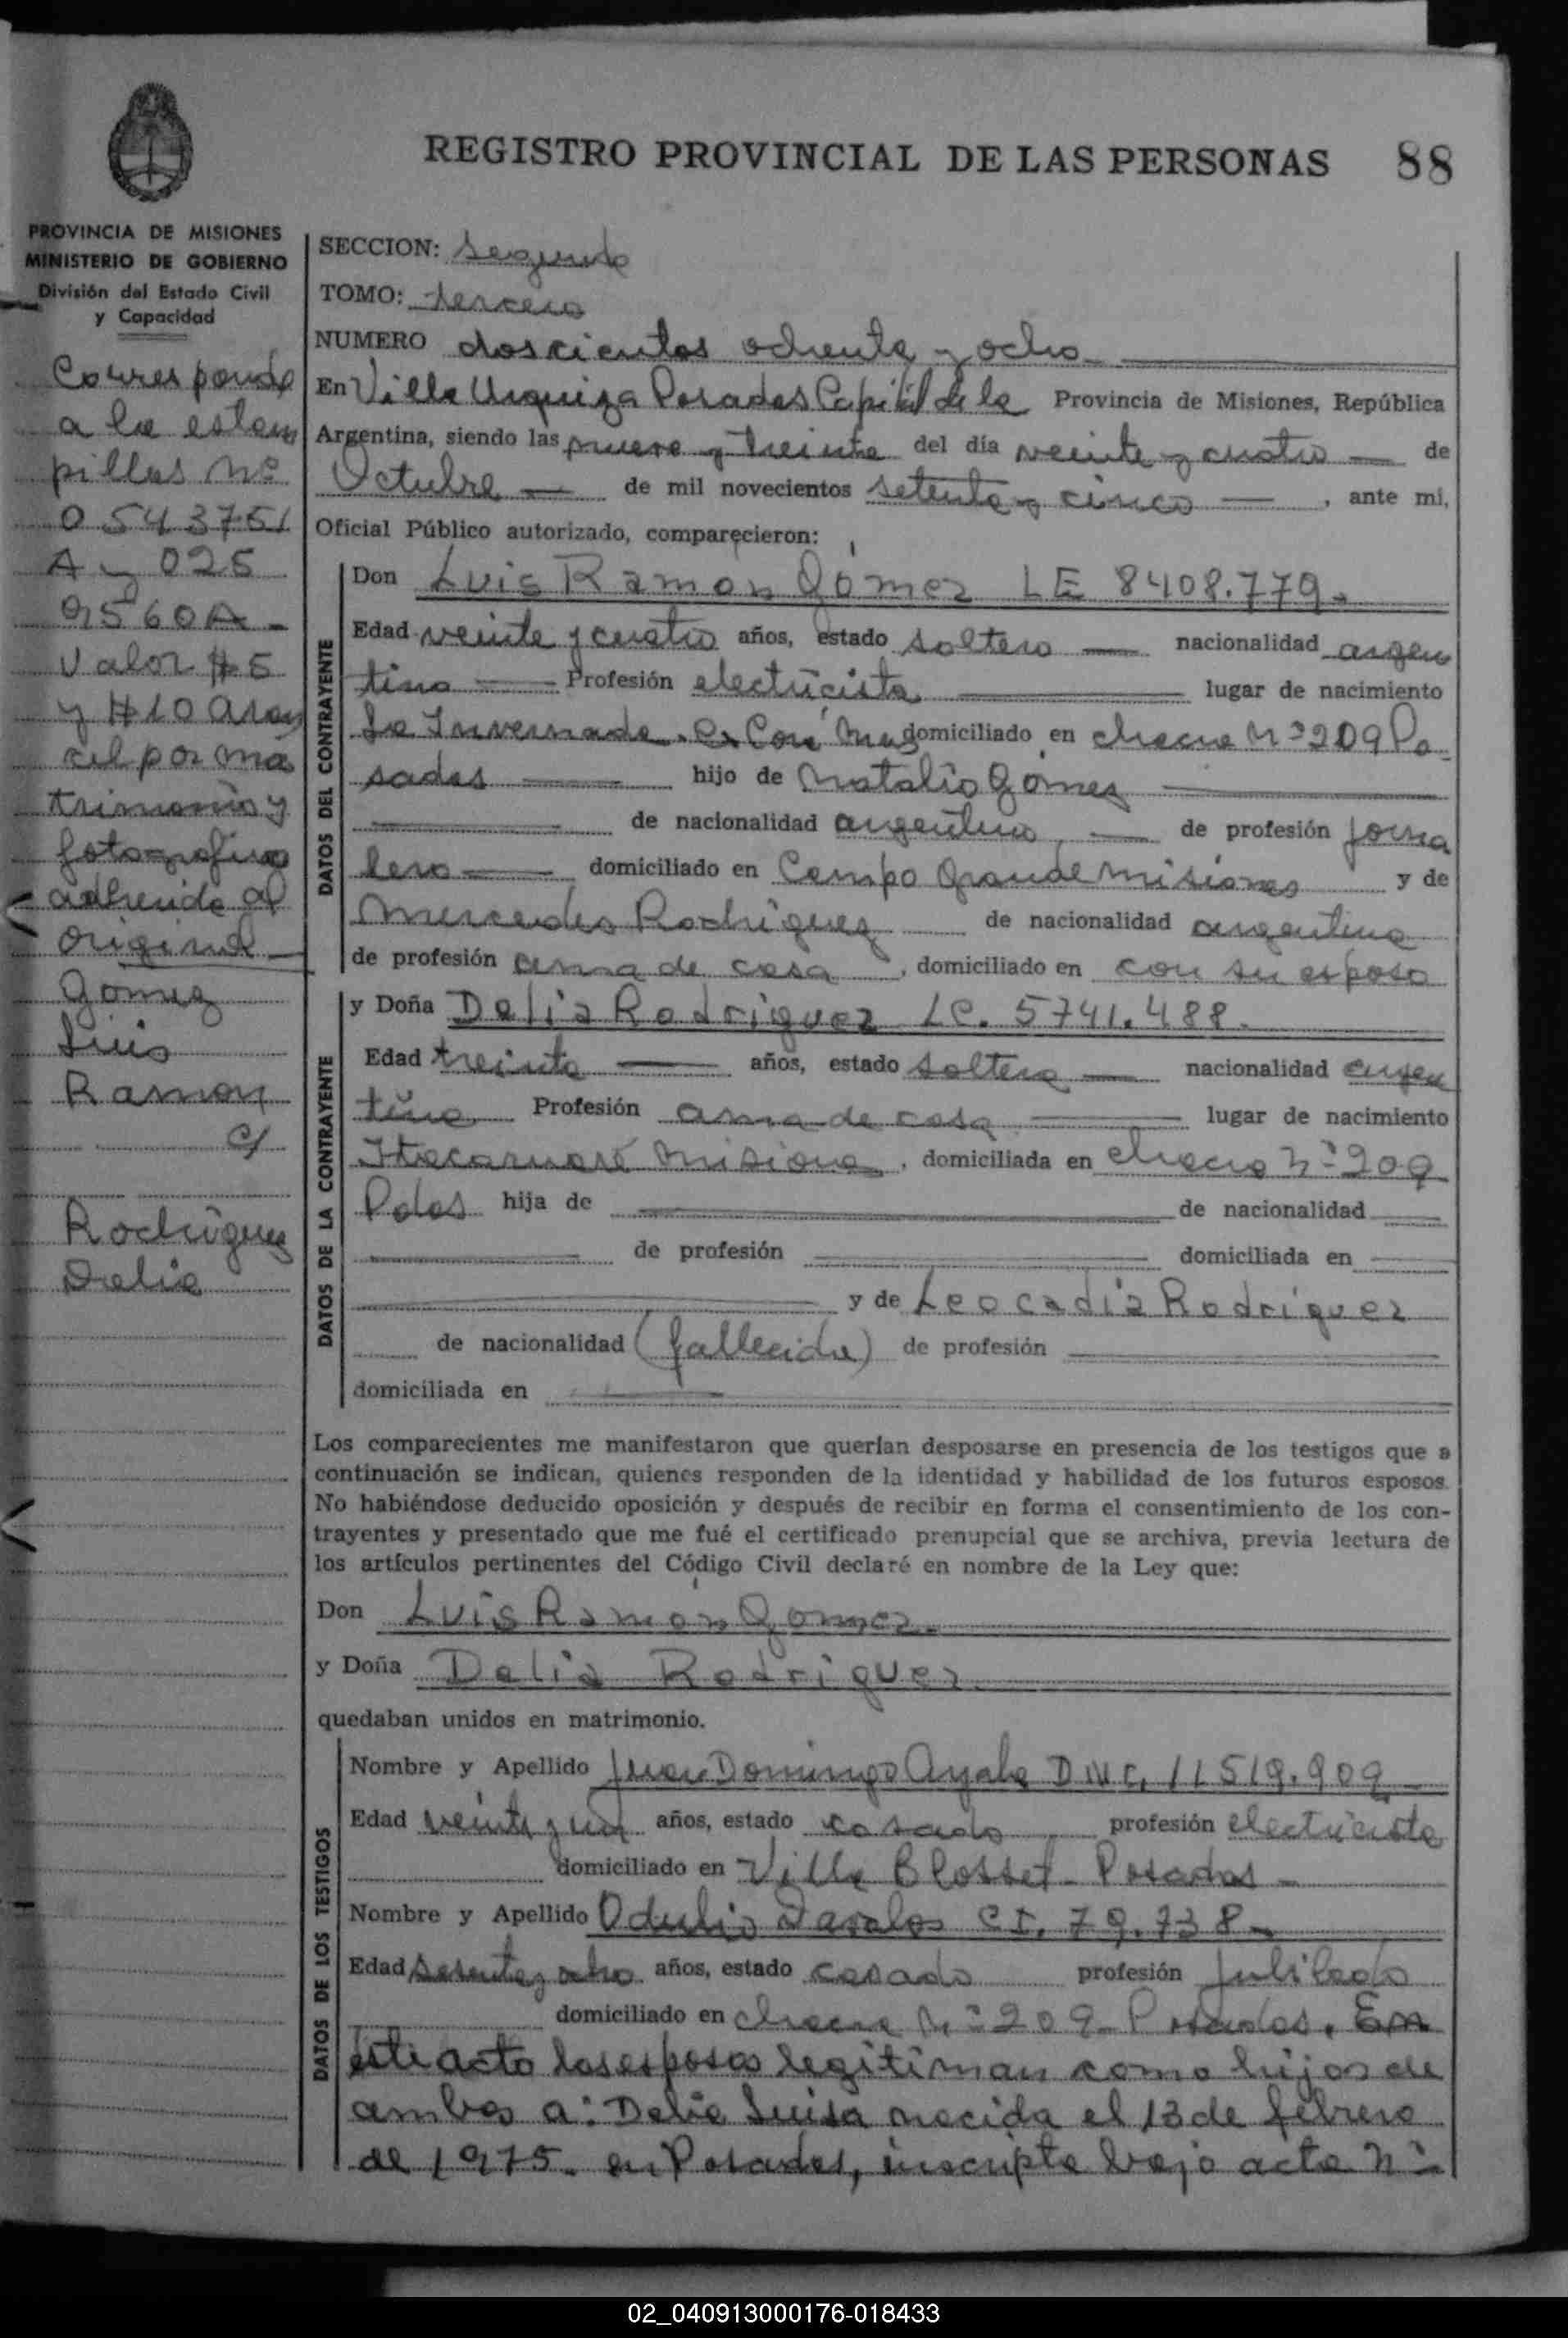 REGISTRO PROVINCIAL DE LAS PERSONAS 88
PROVINCIA DE MISIONES
MINISTERIO DE GOBIERNO
División del Estado Civil
y Capacidad
Corresponde
a la estam
pillas Nº
0543751
A y 025
9560A -
Valor $ 5
y $10 aran
cel por ma
trimonio y
fotografias
adherida al
original
Gomez
Luis
Ramon
c/
Rodriguez
Delia
SECCION: segunda
TOMO: tercero
NUMERO doscientos ochenta y ocho
En Villa Urquiza Posadas Capital de la Provincia de Misiones, República
Argentina, siendo las nueve y treinta del día veinte y cuatro de
Octubre de mil novecientos setenta y cinco , ante mí,
Oficial Público autorizado, comparecieron:
DATOS DEL CONTRAYENTE
Don Luis Ramón Gómez LE 8408.779.
Edad veinte y cuatro años, estado soltero nacionalidad argen
tino Profesión electricista lugar de nacimiento
La Invernada. domiciliado en chacra Nº 209 Po
sadas hijo de Natalio Gómez
de nacionalidad argentino, de profesión jorna
lero domiciliado en Campo Grande Misiones y de
Mercedes Rodriguez de nacionalidad argentina
de profesión ama de casa , domiciliado en con su esposo
DATOS DE LA CONTRAYENTE
y Doña Delia Rodriguez LC. 5741.488.
Edad treinta años, estado soltera nacionalidad argen
tina Profesión ama de casa lugar de nacimiento
Itacaruaré Misiones , domiciliada en chacra Nº 209
Pdas hija de de nacionalidad
de profesión domiciliada en
y de Leocadia Rodriguez
de nacionalidad (fallecida) de profesión
domiciliada en
Los comparecientes me manifestaron que querían desposarse en presencia de los testigos que a
continuación se indican, quienes responden de la identidad y habilidad de los futuros esposos.
No habiéndose deducido oposición y después de recibir en forma el consentimiento de los con-
trayentes y presentado que me fué el certificado prenupcial que se archiva, previa lectura de
los artículos pertinentes del Código Civil declaré en nombre de la Ley que:
Don Luis Ramón Gomez.
y Doña Delia Rodriguez
quedaban unidos en matrimonio.
DATOS DE LOS TESTIGOS
Nombre y Apellido Juan Domingo Ayala D.N.I. 11519.909
Edad veinte y un años, estado casado profesión electricista
domiciliado en Villa Blosset - Posadas -
Nombre y Apellido Odulio Davalos C.I. 79.738 -
Edad sesenta y ocho años, estado casado profesión Jubilado
domiciliado en chacra Nº 209 - Posadas. En
este acto los esposos legitiman como hijos de
ambos a: Delia Luisa nacida el 13 de febrero
de 1975. en Posadas, inscripta bajo acta Nº
02_040913000176-018433